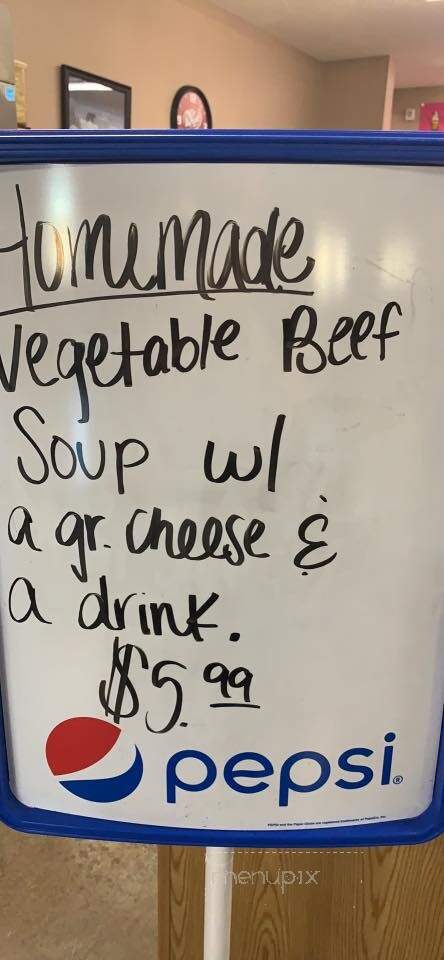 Homemade
Vegetable Beef
Soup w/
a gr. cheese &
a drink.
$5.99
pepsi
menupix